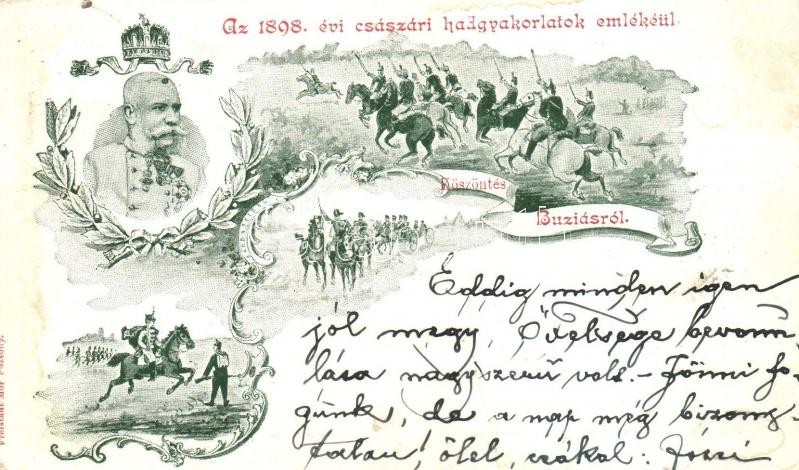 Az 1898. évi császári hadgyakorlatok emlékéül.
Köszöntés
Buziásról.
Eddig minden igen
jól megy, Őfelsége bevonu-
lása nagyszerű volt. – Jönni fo-
gunk, de a nap még bizony-
talan! ölel, csókol: Józsi